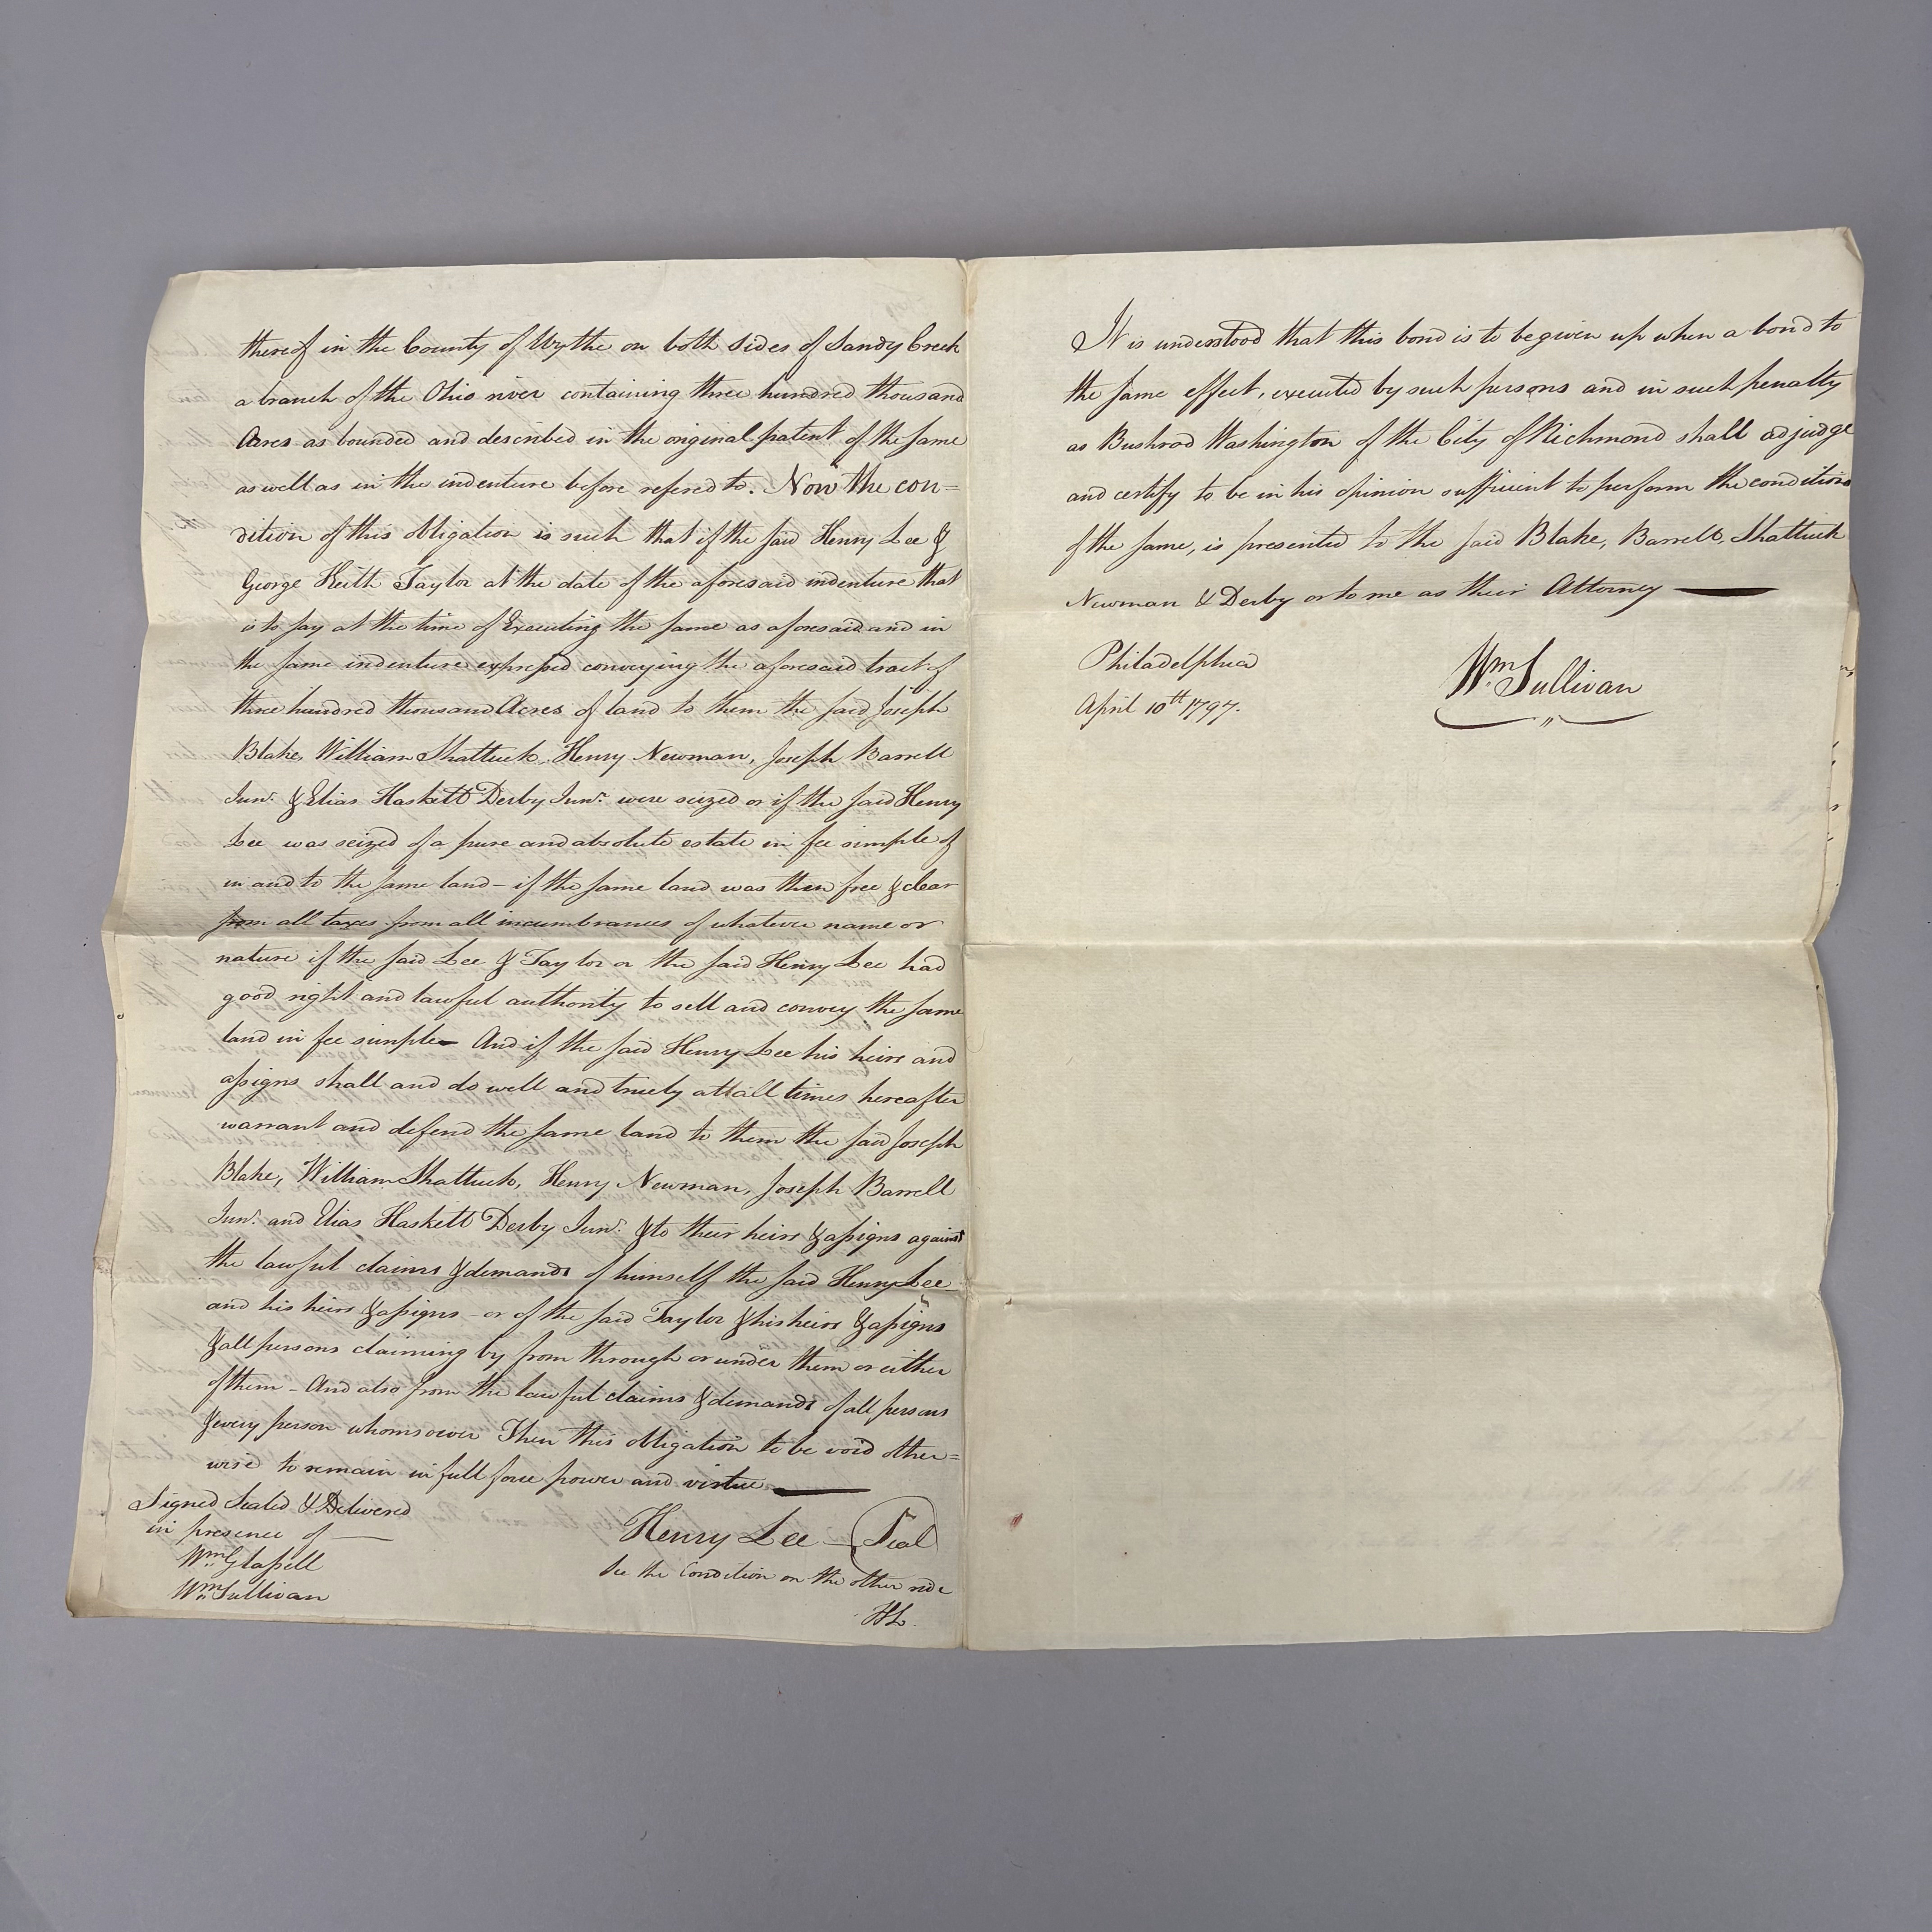 thereof in the County of Wythe on both sides of Sandy Creek
a branch of the Ohio river containing three hundred thousand
Acres as bounded and described in the original patent of the same
as well as in the indenture before refered to. Now the con=
dition of this obligation is such that if the said Henry Lee &
George Keith Taylor at the date of the aforesaid indenture that
is to say at the time of Executing the same as aforesaid and in
the same indenture expressed conveying the aforesaid tract of
three hundred thousand Acres of land to them the said Joseph
Blake, William Shattuck, Henry Newman, Joseph Barrell
Junr. & Elias Haskett Derby Junr. were seized or if the said Henry
Lee was seized of a pure and absolute estate in fee simple of
in and to the same land - if the same land was then free & clear
from all taxes from all incumbrances of whatever name or
nature if the said Lee & Taylor or the said Henry Lee had
good right and lawful authority to sell and convey the same
land in fee simple - And if the said Henry Lee his heirs and
assigns shall and do well and truely at all times hereafter
warrant and defend the same land to them the said Joseph
Blake, William Shattuck, Henry Newman, Joseph Barrell
Junr. and Elias Haskett Derby Junr. & to their heirs & assigns against
the lawful claims & demands of himself the said Henry Lee
and his heirs & assigns - or of the said Taylor & his heirs & assigns
& all persons claiming by from through or under them or either
of them - And also from the lawful claims & demands of all persons
& every person whomsoever Then this obligation to be void other=
wise to remain in full force power and virtue
Signed Sealed & Delivered
in presence of
Wm. Glassell
Wm. Sullivan
Henry Lee - Seal
See the Condition on the other side
HL.
It is understood that this bond is to be given up when a bond to
the same effect, executed by such persons and in such penalty
as Bushrod Washington of the City of Richmond shall adjudge
and certify to be in his opinion sufficient to perform the conditions
of the same, is presented to the said Blake, Barrell, Shattuck
Newman & Derby or to me as their Attorney
Philadelphia
April 10th 1797.
Wm. Sullivan